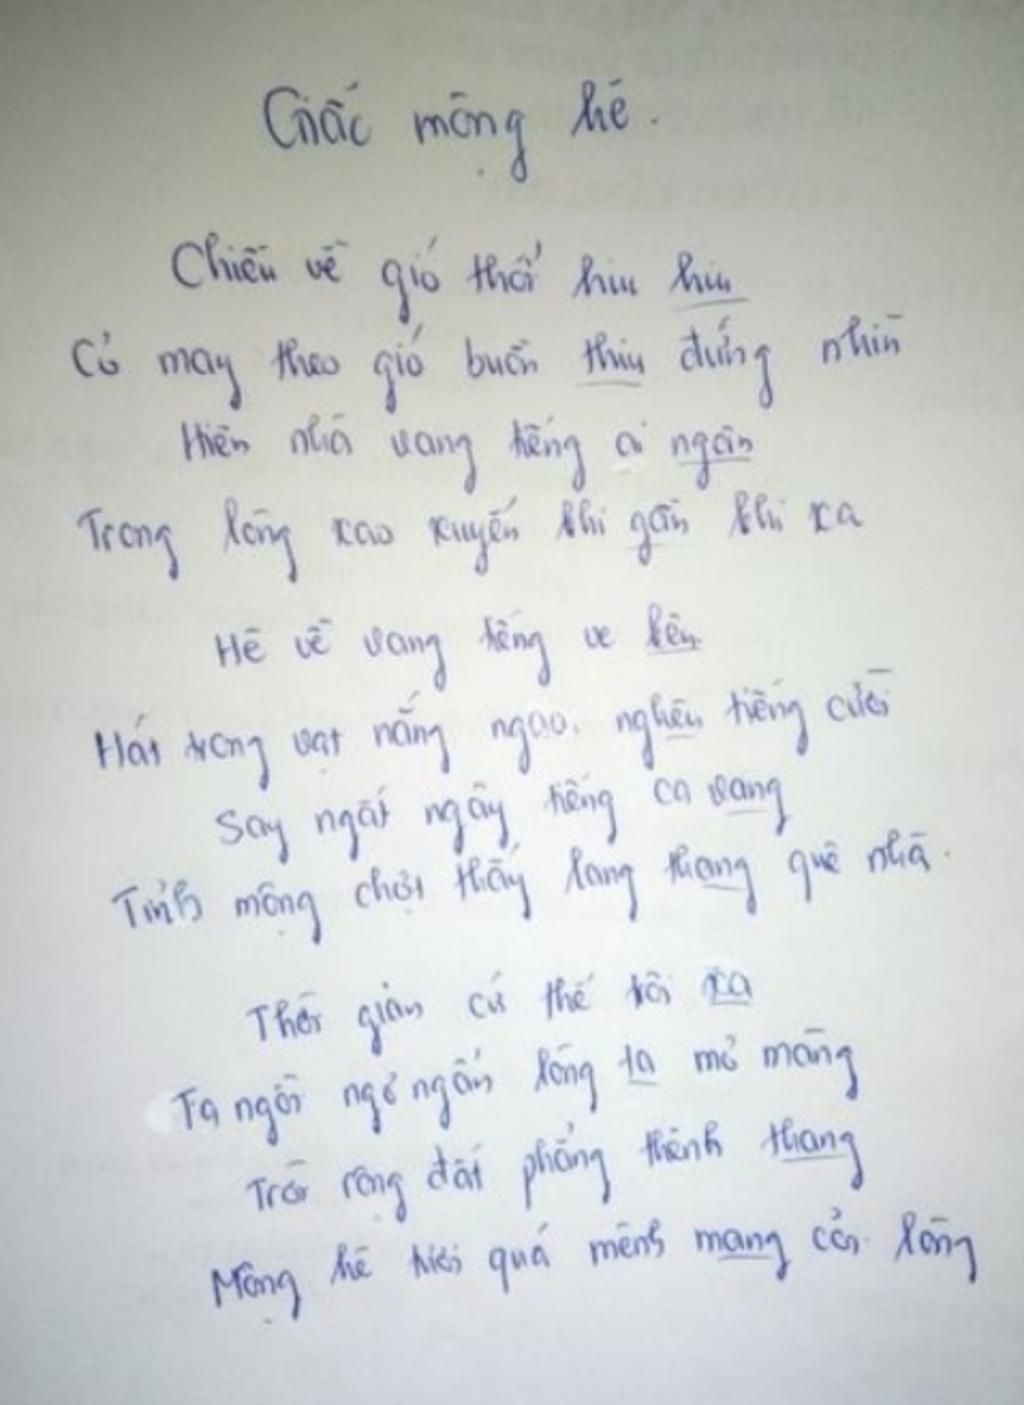 Giấc mộng hè.
Chiều về gió thổi hiu hiu
Cỏ may theo gió buồn thiu đứng nhìn
Hiên nhà vang tiếng ai ngân
Trong lòng xao xuyến khi gần khi xa
Hè về vang tiếng ve kêu
Hát trong vạt nắng ngao, nghêu tiếng cười
Say ngất ngây tiếng ca vang
Tỉnh mộng chợt thấy lang thang quê nhà.
Thời gian cứ thế trôi xa
Ta ngồi ngơ ngẩn lòng ta mơ màng
Trời rộng đất phẳng thênh thang
Mộng hè tươi quá mênh mang cõi lòng